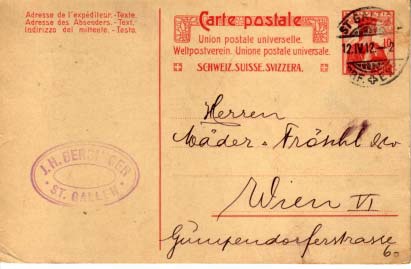 Adresse de l'expéditeur.-Texte.
Adresse des Absenders.-Text.
Indirizzo del mittente.-Testo.
Carte postale
Union postale universelle.
Weltpostverein. Unione postale universale.
SCHWEIZ. SUISSE. SVIZZERA.
ST. GALLEN
12.IV.12.-2
10
J.H.
ST. GALLEN
Herren
Mäder
Wien VI
Gumpendorferstrasse
60